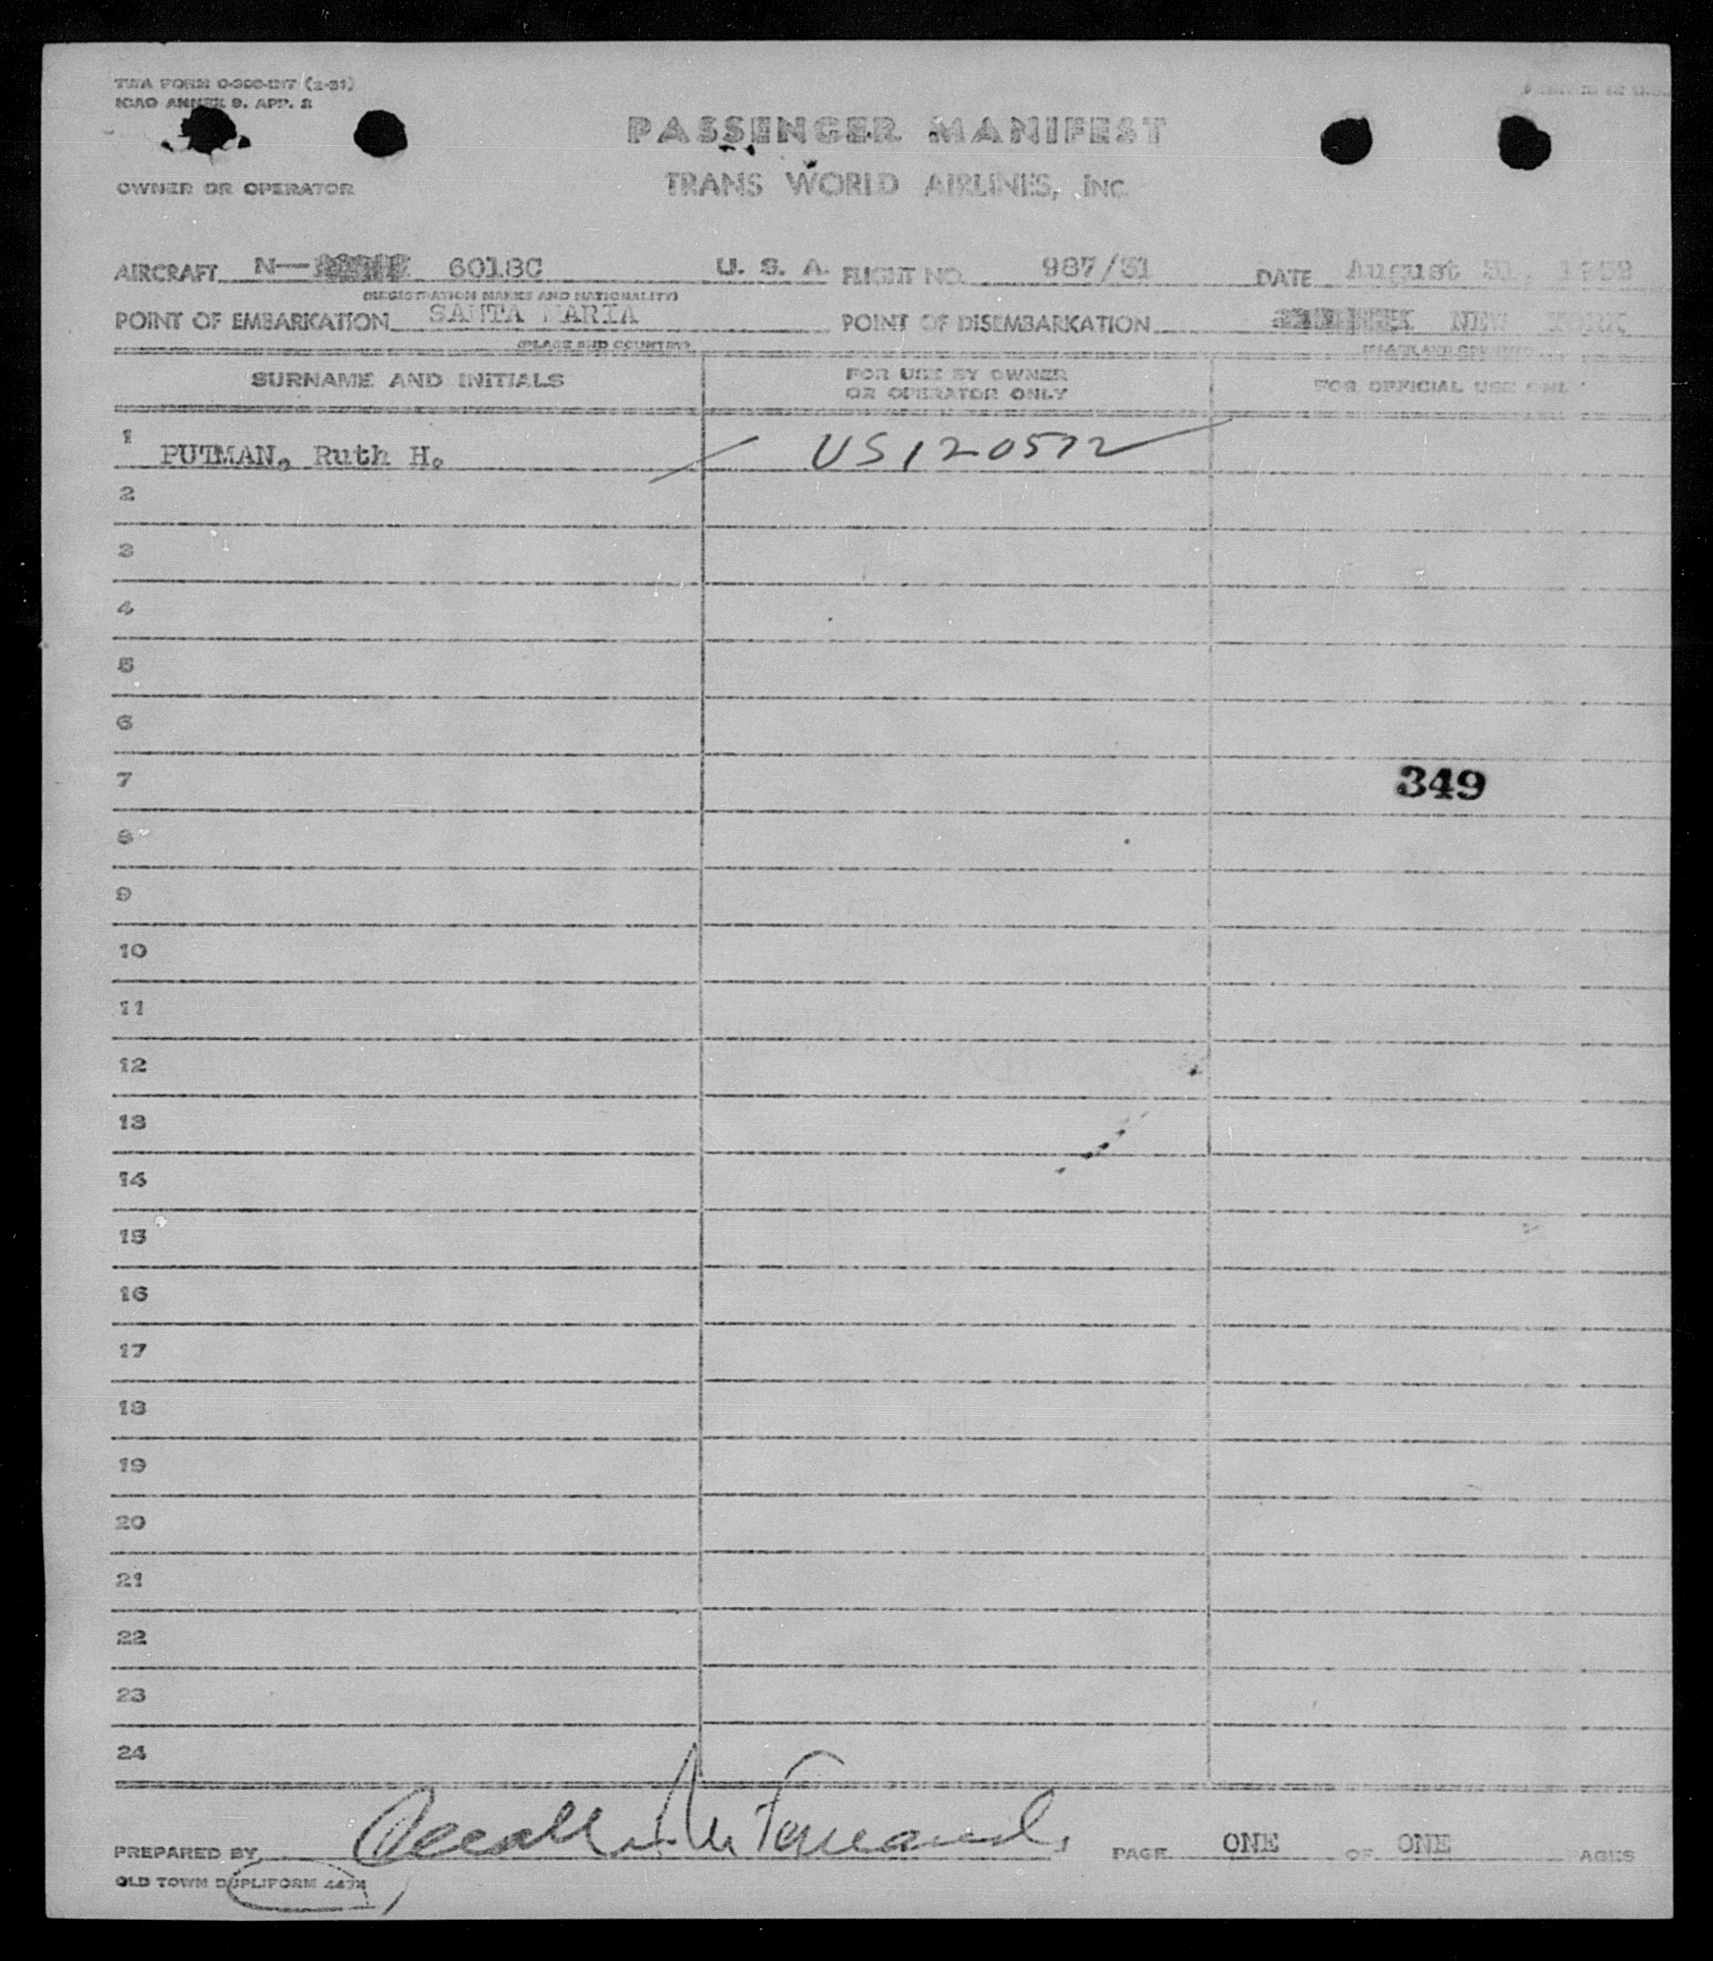 TWA FORM O-300-INT (2-51)
ICAO ANNEX 9. APP. 2
PASSENGER MANIFEST
OWNER OR OPERATOR TRANS WORLD AIRLINES, INC.
AIRCRAFT N— 6018C U. S. A. FLIGHT NO. 987/31 DATE August 31, 1952
(REGISTRATION MARKS AND NATIONALITY)
POINT OF EMBARKATION SANTA MARIA POINT OF DISEMBARKATION NEW YORK
(PLACE AND COUNTRY) (PLACE AND COUNTRY)
SURNAME AND INITIALS FOR USE BY OWNER OR OPERATOR ONLY FOR OFFICIAL USE ONLY
1 PUTMAN, Ruth H. US120572
2
3
4
5
6
7 349
8
9
10
11
12
13
14
15
16
17
18
19
20
21
22
23
24
PREPARED BY PAGE ONE OF ONE AGES
OLD TOWN DUPLIFORM